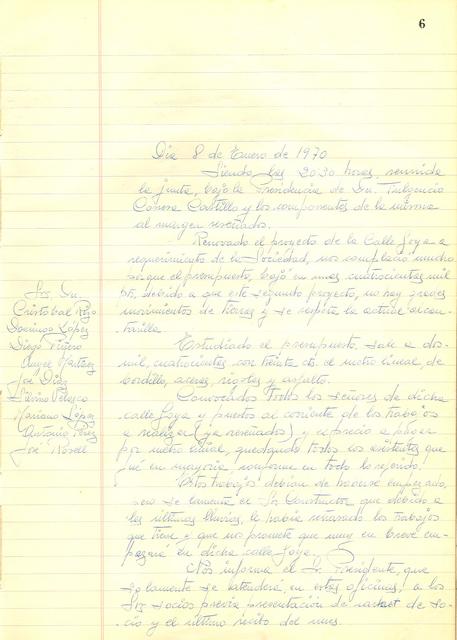 6
Dia 8 de Enero de 1970
Siendo las 20'30 horas, reunida
la junta, bajo la Presidencia de Dn. Fulgencio
Cónesa Castillo y los componentes de la misma
al margen reseñados.
Renovado el proyecto de la Calle Goya a
requerimiento de la Sociedad, nos complació mucho
que el presupuesto, bajó en unas cuatrocientas mil
pts, debido a que este segundo proyecto, no hay graves
movimientos de tierras y se respeta la actual alcan-
tarilla.
Estudiado el presupuesto, sale a dos
mil, cuatrocientas con treinta cts. el metro lineal, de
bordillo, aceras, rigolas y asfalto.
Convocados todos los señores de dicha
calle Goya y puestos al corriente de los trabajos
a realizar (ya reseñados) y el precio a pagar
por metro lineal, quedando todos los asistentes que
fué en mayoria, conforme en todo lo referido.
Estos trabajos debian de haberse empezado,
pero se lamenta el Sr. Constructor que debido a
las últimas lluvias, le había retrasado los trabajos
que tiene y que nos promete que muy en breve em-
pezará en dicha calle Goya.
Nos informa el Sr. Presidente, que
solamente se atenderá, en estas oficinas, a los
Srs. socios previa presentación de carnet de so-
cio y el último recibo del mes.
Srs. Dn.
Cristobal Rojo
Dominos López
Diego Piñero
Angel Martinez
José Diaz
Silvino Velasco
Mariano López
Antonio Perez
José Rosell